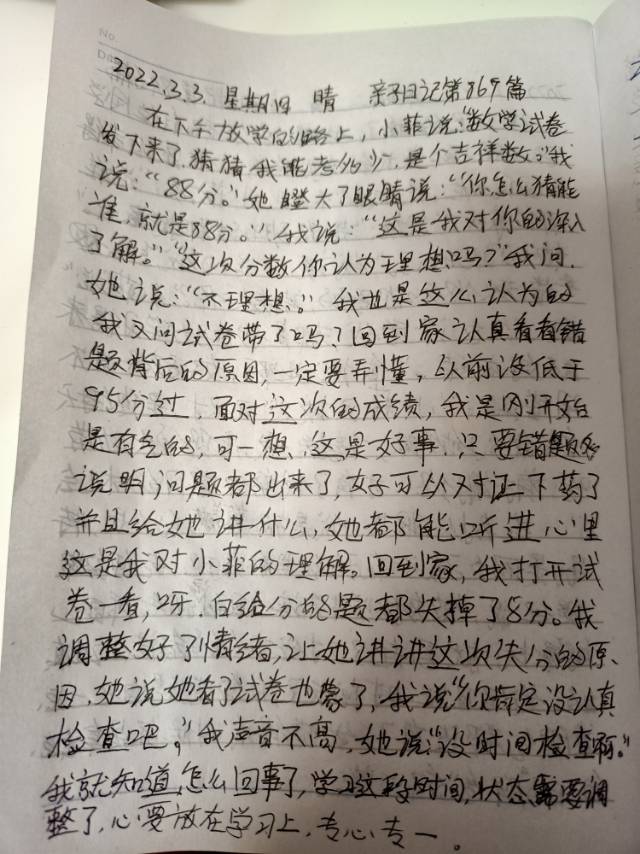 No
2022.3.3. 星期四 晴 亲子日记第869篇
在下午放学的路上，小菲说：“数学试卷
发下来了，猜猜我能考多少，是个吉祥数。”我
说：“88分。”她瞪大了眼睛说：“你怎么猜能
准，就是88分。”我说：“这是我对你的深入
了解。”“这次分数你认为理想吗？”我问.
她说：“不理想。”我也是这么认为的
我又问试卷带了吗？回到家认真看看错
题背后的原因，一定要弄懂，以前没低于
95分过，面对这次的成绩，我是刚开始
是有气的，可一想，这是好事，只要错题多
说明问题都出来了，好可以对证下药了
并且给她讲什么，她都能听进心里
这是我对小菲的理解。回到家，我打开试
卷一看，呀，白给分的题都失掉了8分。我
调整好了情绪，让她讲讲这次失分的原
因，她说她看了试卷也蒙了，我说“你肯定没认真
检查吧。”我声音不高，她说“没时间检查啊。”
我就知道，怎么回事了，学习这段时间，状态需要调
整了，心要放在学习上，专心专一。